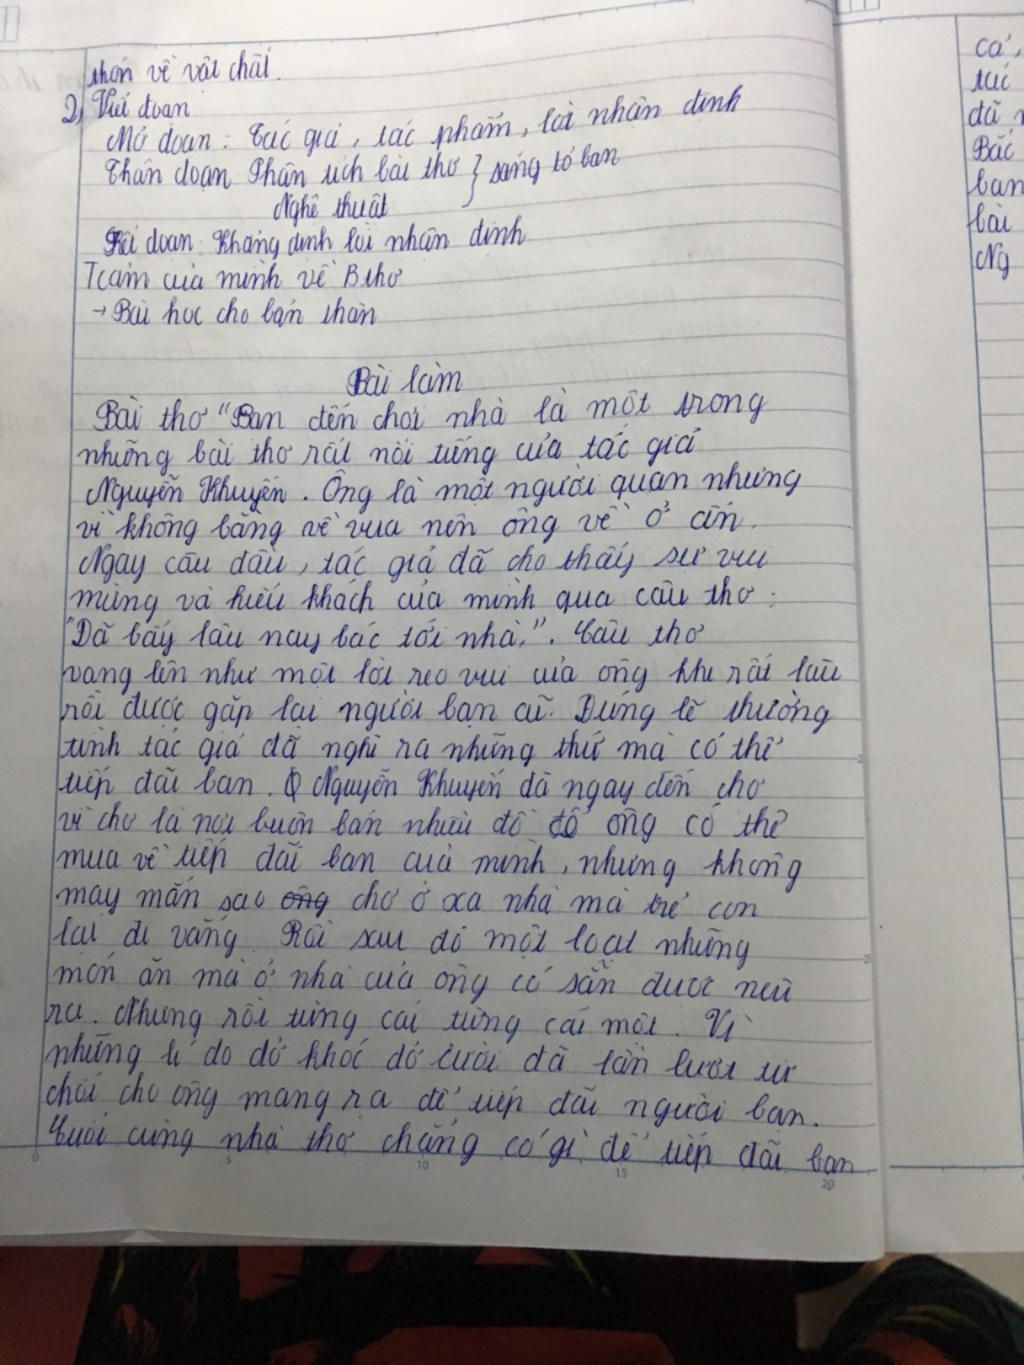 thốn về vật chất.
2) Viết đoạn
Mở đoạn: Tác giả, tác phẩm, lời nhận định
Thân đoạn Phân tích bài thơ } sáng tỏ bạn
Nghệ thuật
Kết đoạn: Khẳng định lời nhận định
Tcảm của mình về Bthơ
→ Bài học cho bản thân
Bài làm
Bài thơ "Bạn đến chơi nhà là một trong
những bài thơ rất nổi tiếng của tác giả
Nguyễn Khuyến. Ông là một người quan nhưng
vì không bằng về vua nên ông về ở ẩn.
Ngay câu đầu, tác giả đã cho thấy sự vui
mừng và hiếu khách của mình qua câu thơ:
"Đã bấy lâu nay bác tới nhà,". Câu thơ
vang lên như một lời reo vui của ông khi rất lâu
rồi được gặp lại người bạn cũ. Đúng lẽ thường
tình tác giả đã nghĩ ra những thứ mà có thể
tiếp đãi bạn. Nguyễn Khuyến đã ngay đến chợ
vì chợ là nơi buôn bán nhiều đồ để ông có thể
mua về tiếp đãi bạn của mình, nhưng không
may mắn sao ông chợ ở xa nhà mà trẻ con
lại đi vắng. Rồi sau đó một loạt những
món ăn mà ở nhà của ông có sẵn được nêu
ra. Nhưng rồi từng cái từng cái một. Vì
những lí do dở khóc dở cười đã lần lượt từ
chối cho ông mang ra để tiếp đãi người bạn.
Cuối cùng nhà thơ chẳng có gì để tiếp đãi bạn
cả,
tác
đã
Bác
bạn
bài
Ng